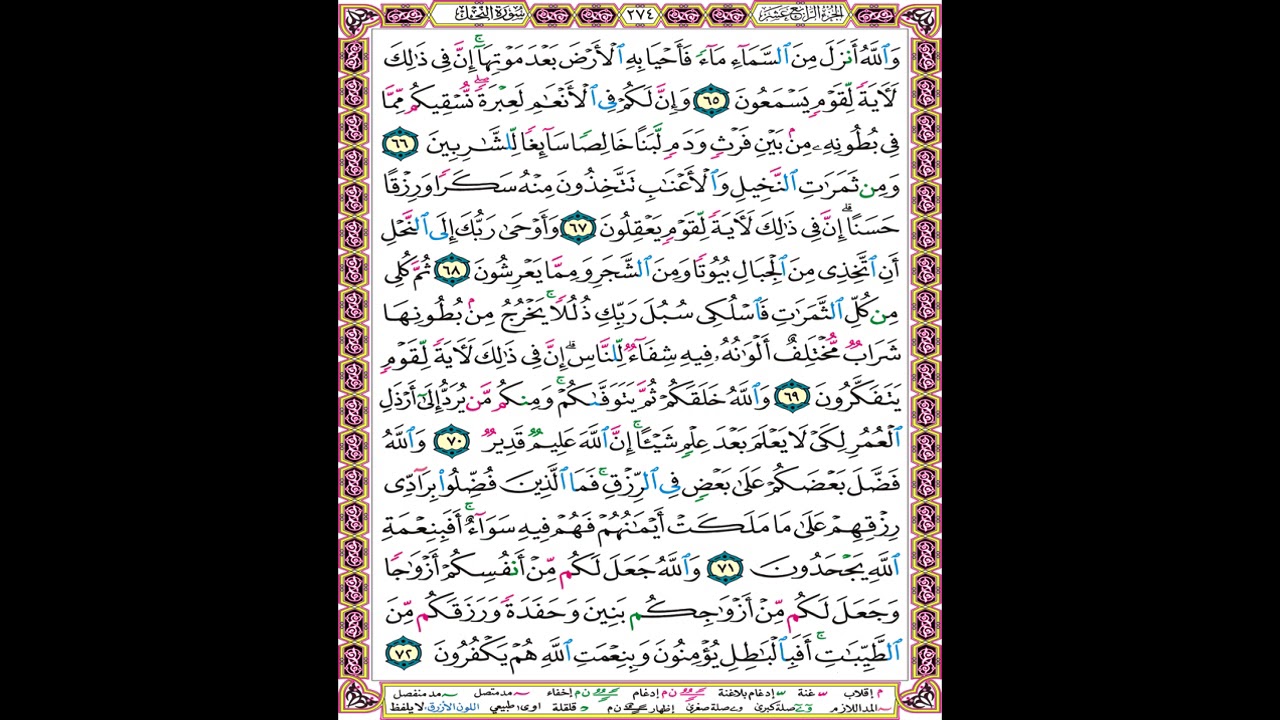 الجزء الرابع عشر ٢٧٤ سورة النحل
وَٱللَّهُ أَنزَلَ مِنَ ٱلسَّمَآءِ مَآءً فَأَحْيَا بِهِ ٱلْأَرْضَ بَعْدَ مَوْتِهَآ ۚ إِنَّ فِى ذَٰلِكَ
لَـَٔايَةً لِّقَوْمٍ يَسْمَعُونَ ٦٥ وَإِنَّ لَكُمْ فِى ٱلْأَنْعَـٰمِ لَعِبْرَةً ۖ نُّسْقِيكُم مِّمَّا
فِى بُطُونِهِۦ مِنۢ بَيْنِ فَرْثٍ وَدَمٍ لَّبَنًا خَالِصًا سَآئِغًا لِّلشَّـٰرِبِينَ ٦٦
وَمِن ثَمَرَٰتِ ٱلنَّخِيلِ وَٱلْأَعْنَـٰبِ تَتَّخِذُونَ مِنْهُ سَكَرًا وَرِزْقًا
حَسَنًا ۗ إِنَّ فِى ذَٰلِكَ لَـَٔايَةً لِّقَوْمٍ يَعْقِلُونَ ٦٧ وَأَوْحَىٰ رَبُّكَ إِلَى ٱلنَّحْلِ
أَنِ ٱتَّخِذِى مِنَ ٱلْجِبَالِ بُيُوتًا وَمِنَ ٱلشَّجَرِ وَمِمَّا يَعْرِشُونَ ٦٨ ثُمَّ كُلِى
مِن كُلِّ ٱلثَّمَرَٰتِ فَٱسْلُكِى سُبُلَ رَبِّكِ ذُلُلًا ۚ يَخْرُجُ مِنۢ بُطُونِهَا
شَرَابٌ مُّخْتَلِفٌ أَلْوَٰنُهُۥ فِيهِ شِفَآءٌ لِّلنَّاسِ ۗ إِنَّ فِى ذَٰلِكَ لَـَٔايَةً لِّقَوْمٍ
يَتَفَكَّرُونَ ٦٩ وَٱللَّهُ خَلَقَكُمْ ثُمَّ يَتَوَفَّىٰكُمْ ۚ وَمِنكُم مَّن يُرَدُّ إِلَىٰٓ أَرْذَلِ
ٱلْعُمُرِ لِكَىْ لَا يَعْلَمَ بَعْدَ عِلْمٍ شَيْـًٔا ۚ إِنَّ ٱللَّهَ عَلِيمٌ قَدِيرٌ ٧٠ وَٱللَّهُ
فَضَّلَ بَعْضَكُمْ عَلَىٰ بَعْضٍ فِى ٱلرِّزْقِ ۚ فَمَا ٱلَّذِينَ فُضِّلُوا۟ بِرَآدِّى
رِزْقِهِمْ عَلَىٰ مَا مَلَكَتْ أَيْمَـٰنُهُمْ فَهُمْ فِيهِ سَوَآءٌ ۚ أَفَبِنِعْمَةِ
ٱللَّهِ يَجْحَدُونَ ٧١ وَٱللَّهُ جَعَلَ لَكُم مِّنْ أَنفُسِكُمْ أَزْوَٰجًا
وَجَعَلَ لَكُم مِّنْ أَزْوَٰجِكُم بَنِينَ وَحَفَدَةً وَرَزَقَكُم مِّنَ
ٱلطَّيِّبَـٰتِ ۚ أَفَبِٱلْبَـٰطِلِ يُؤْمِنُونَ وَبِنِعْمَتِ ٱللَّهِ هُمْ يَكْفُرُونَ ٧٢
م إقلاب غنة إدغام بلاغنة ن م إدغام ن م إخفاء مد متصل مد منفصل
المد اللازم صلة كبرى صلة صغرى إظهار ن م قلقلة اوى: طبيعي اللون الأزرق: لا يلفظ